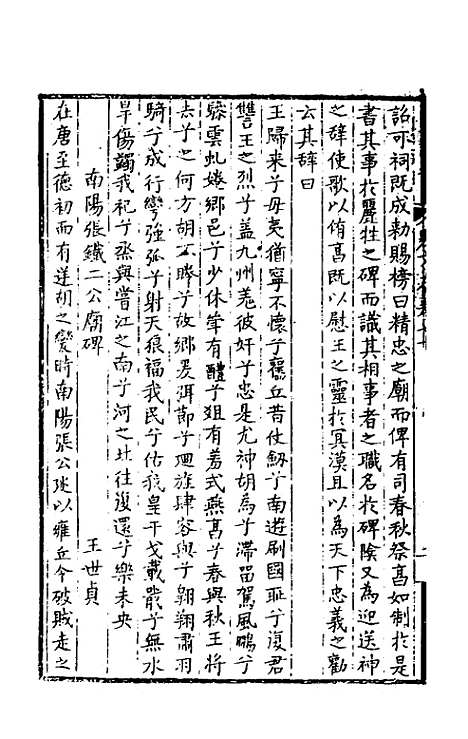 詔可祠既成勑賜榜曰精忠之廟而俾有司春秋祭亯如制於是
書其事於麗牲之碑而識其相事者之職名於碑陰又為迎送神
之辭使歌以侑亯既以慰王之靈於冥漠且以為天下忠義之勸
云其辭曰
王歸來兮毋夷猶寧不懷兮舊丘昔仗劒兮南遊刷國恥兮復君
讐王之烈兮蓋九州羌彼奸兮忠是尤神胡為兮滯留駕風鵬兮
驂雲虬婘鄉邑兮少休算有醴兮俎有羞式燕亯兮春與秋王將
去兮之何方胡不睠兮故鄉爰弭節兮迴旌肆容與兮翱翔肅羽
騎兮成行彎強弧兮射天狼福我民兮佑我皇干戈戢戢兮無水
旱傷蠲我祀兮烝與嘗江之南兮河之北往復還兮樂未央
南陽張鐵二公廟碑 王世貞
在唐至德初而有逆胡之變時南陽張公𢓜以雍丘令破賊走之